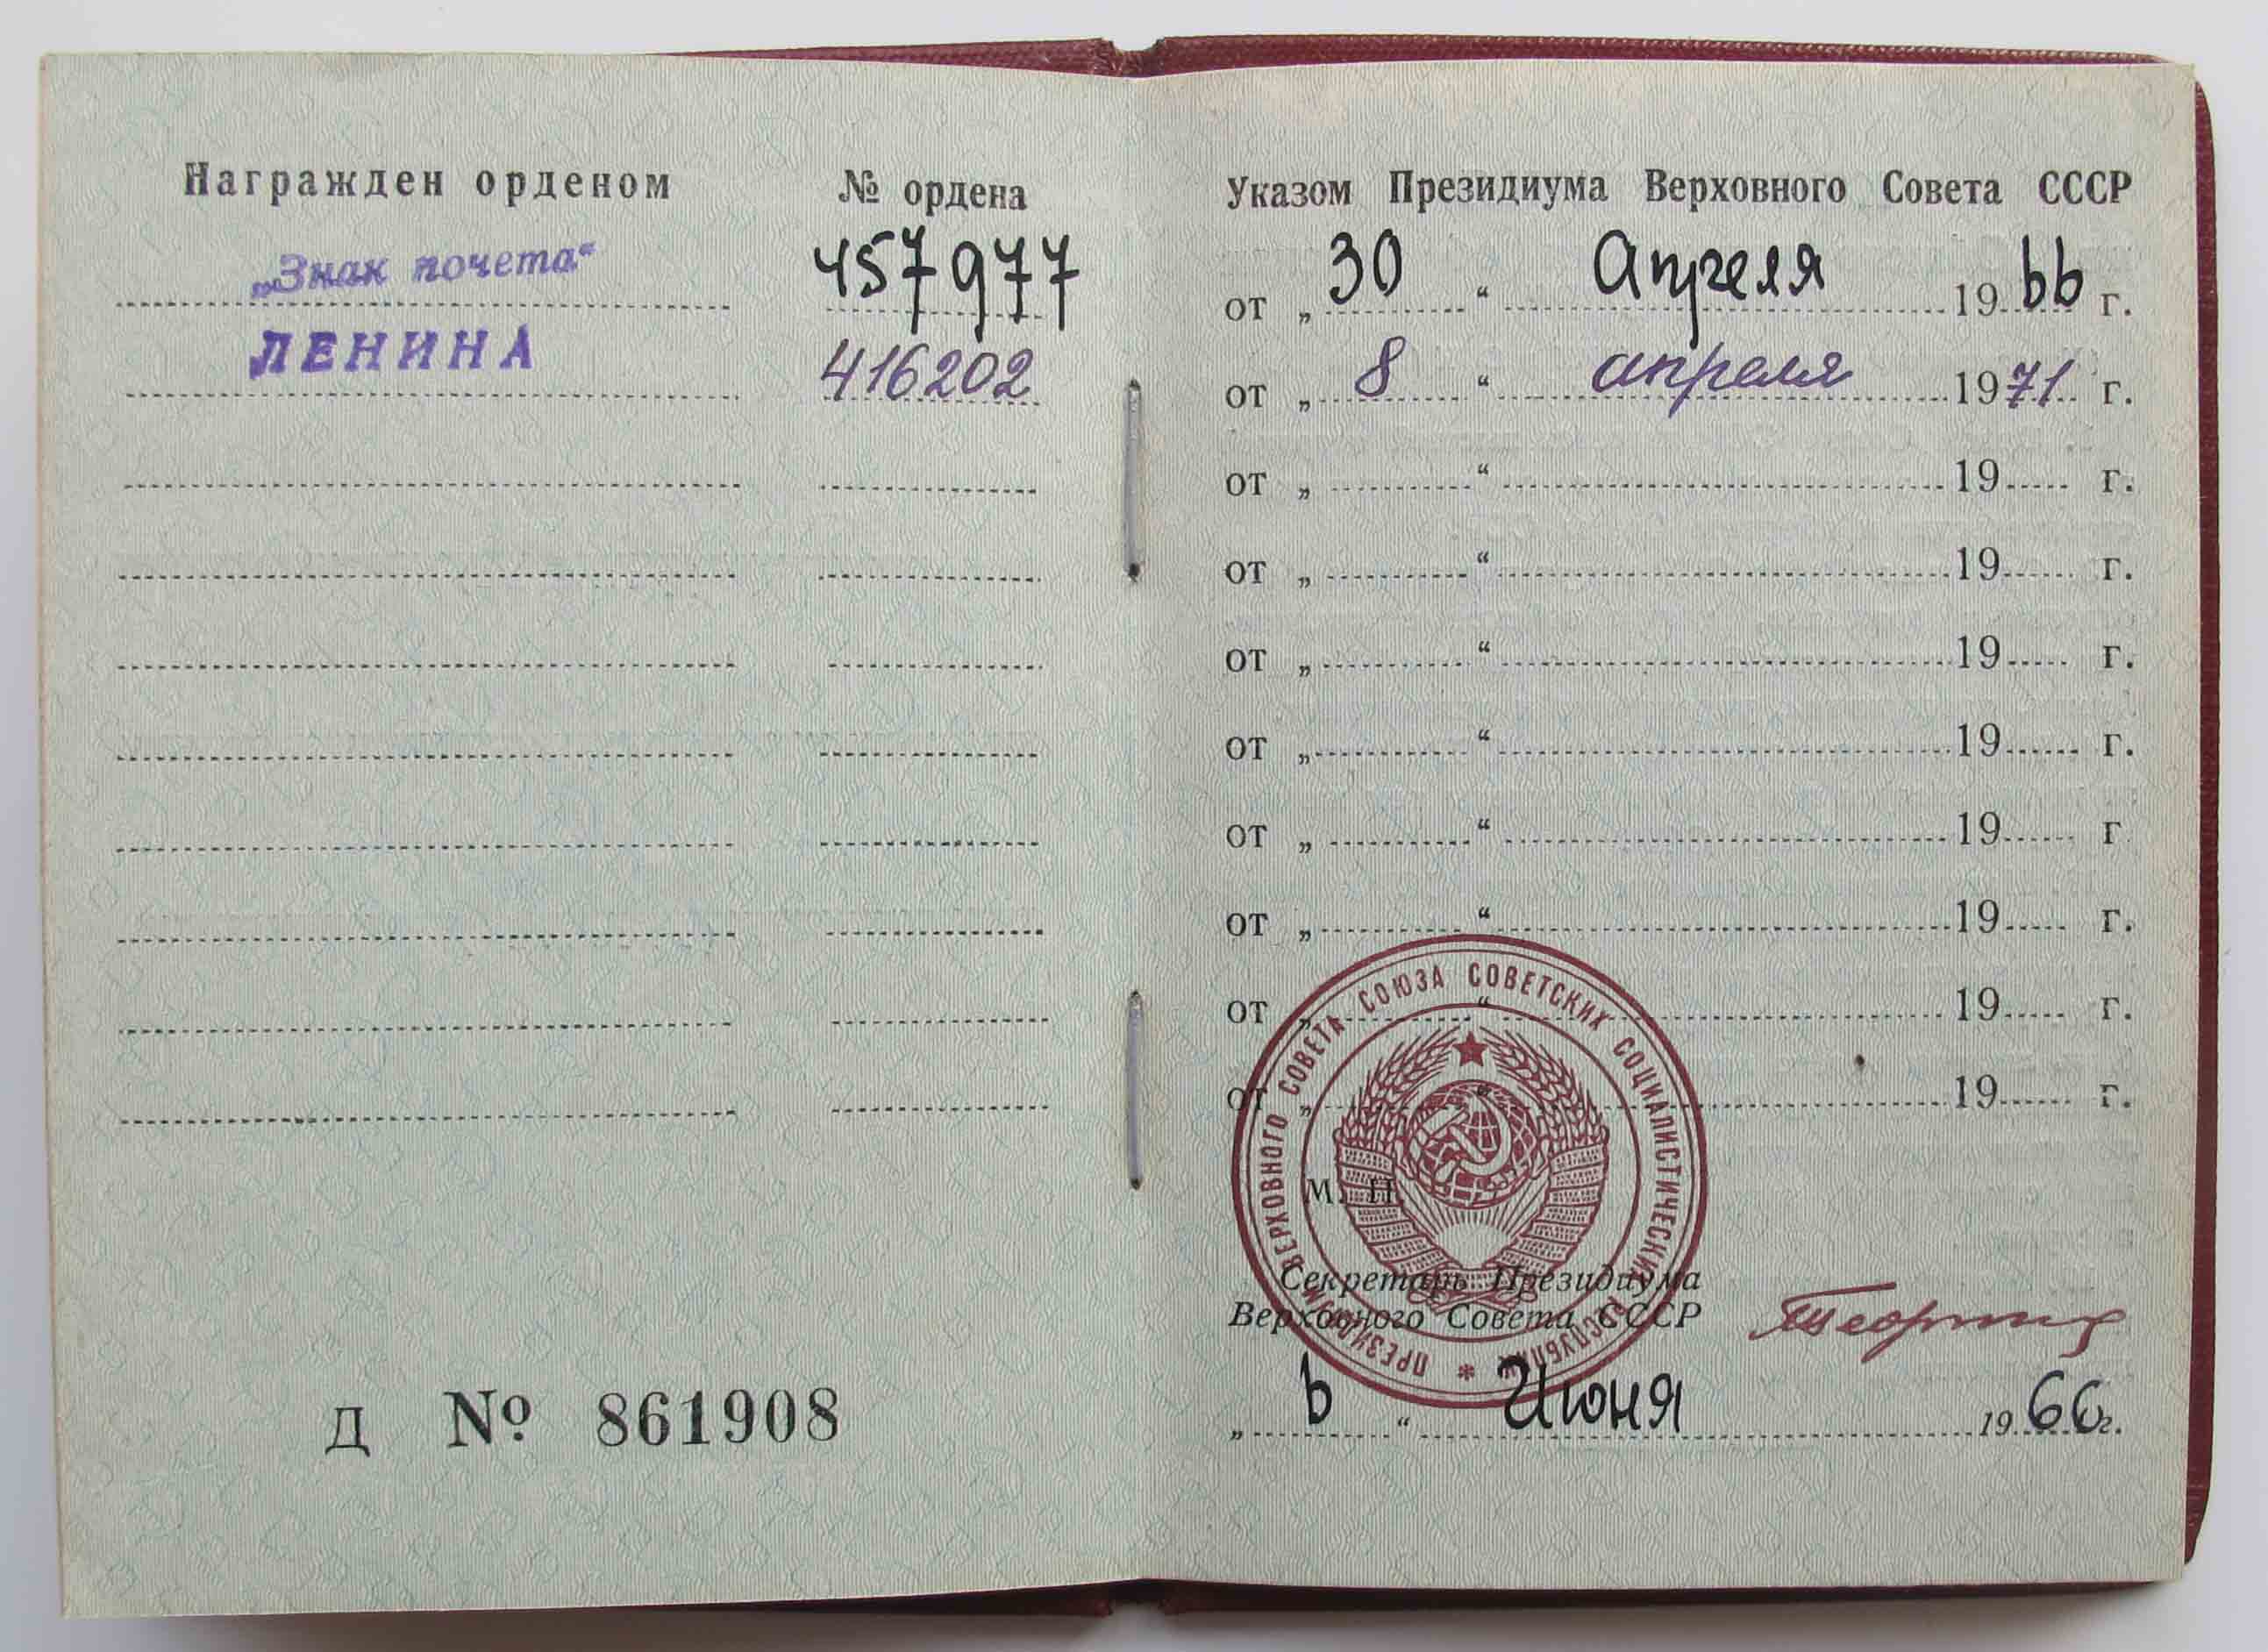 Награжден орденом № ордена
„Знак почета“ 457977
ЛЕНИНА 416202
Д № 861908
Указом Президиума Верховного Совета СССР
от „30“ Апреля 1966 г.
от „8“ апреля 1971 г.
от „ “ 19 г.
от „ “ 19 г.
от „ “ 19 г.
от „ “ 19 г.
от „ “ 19 г.
от „ “ 19 г.
от „ “ 19 г.
от „ “ 19 г.
ПРЕЗИДИУМ ВЕРХОВНОГО СОВЕТА СОЮЗА СОВЕТСКИХ СОЦИАЛИСТИЧЕСКИХ РЕСПУБЛИК *
М. П.
Секретарь Президиума
Верховного Совета СССР
„6“ Июня 1966 г.